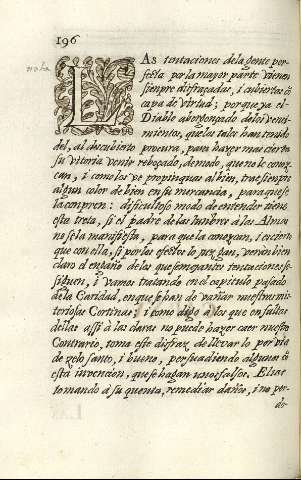 196
nota
LAS tentaciones dela gente per-
fecta por la mayor parte vienen
siempre disfraçadas, i cubiertas cõ
capa de virtud; porque ya el
Diablo avergonçado de los venci-
mientos, que las tales han tenido
del, al descubierto procura, para hazer mas cierta
su vitoria venir reboçado, de modo, que no le conoz-
can, i como los ve propinquar al bien, trae siempre
algun color de bien en su mercancia, para que se
la compren: dificultoso modo de entender tiene
esta treta, si el padre de las lumbres à las Almas
no se la manifiesta, para que la conozcan, i
que con ella, si por los efectos lo juzgan, veràn bien
claro el engaño de los que semejantes tentaciones se-
siguen, i vamos tratando en el capitulo pasado
de la Caridad, en que se han de vañar nuestras mis-
teriosas Cortinas: i como digo à los que en faltas
dellas assi à las claras no puede hazer caer nuestro
Contrario, toma este disfraz de llevarlo por via
de zelo santo, i bueno, persuadiendo algunas cõ
esta invencion, que se hagan unos falsos Elias
tomando à su quenta, remediar daños, i no per-
do